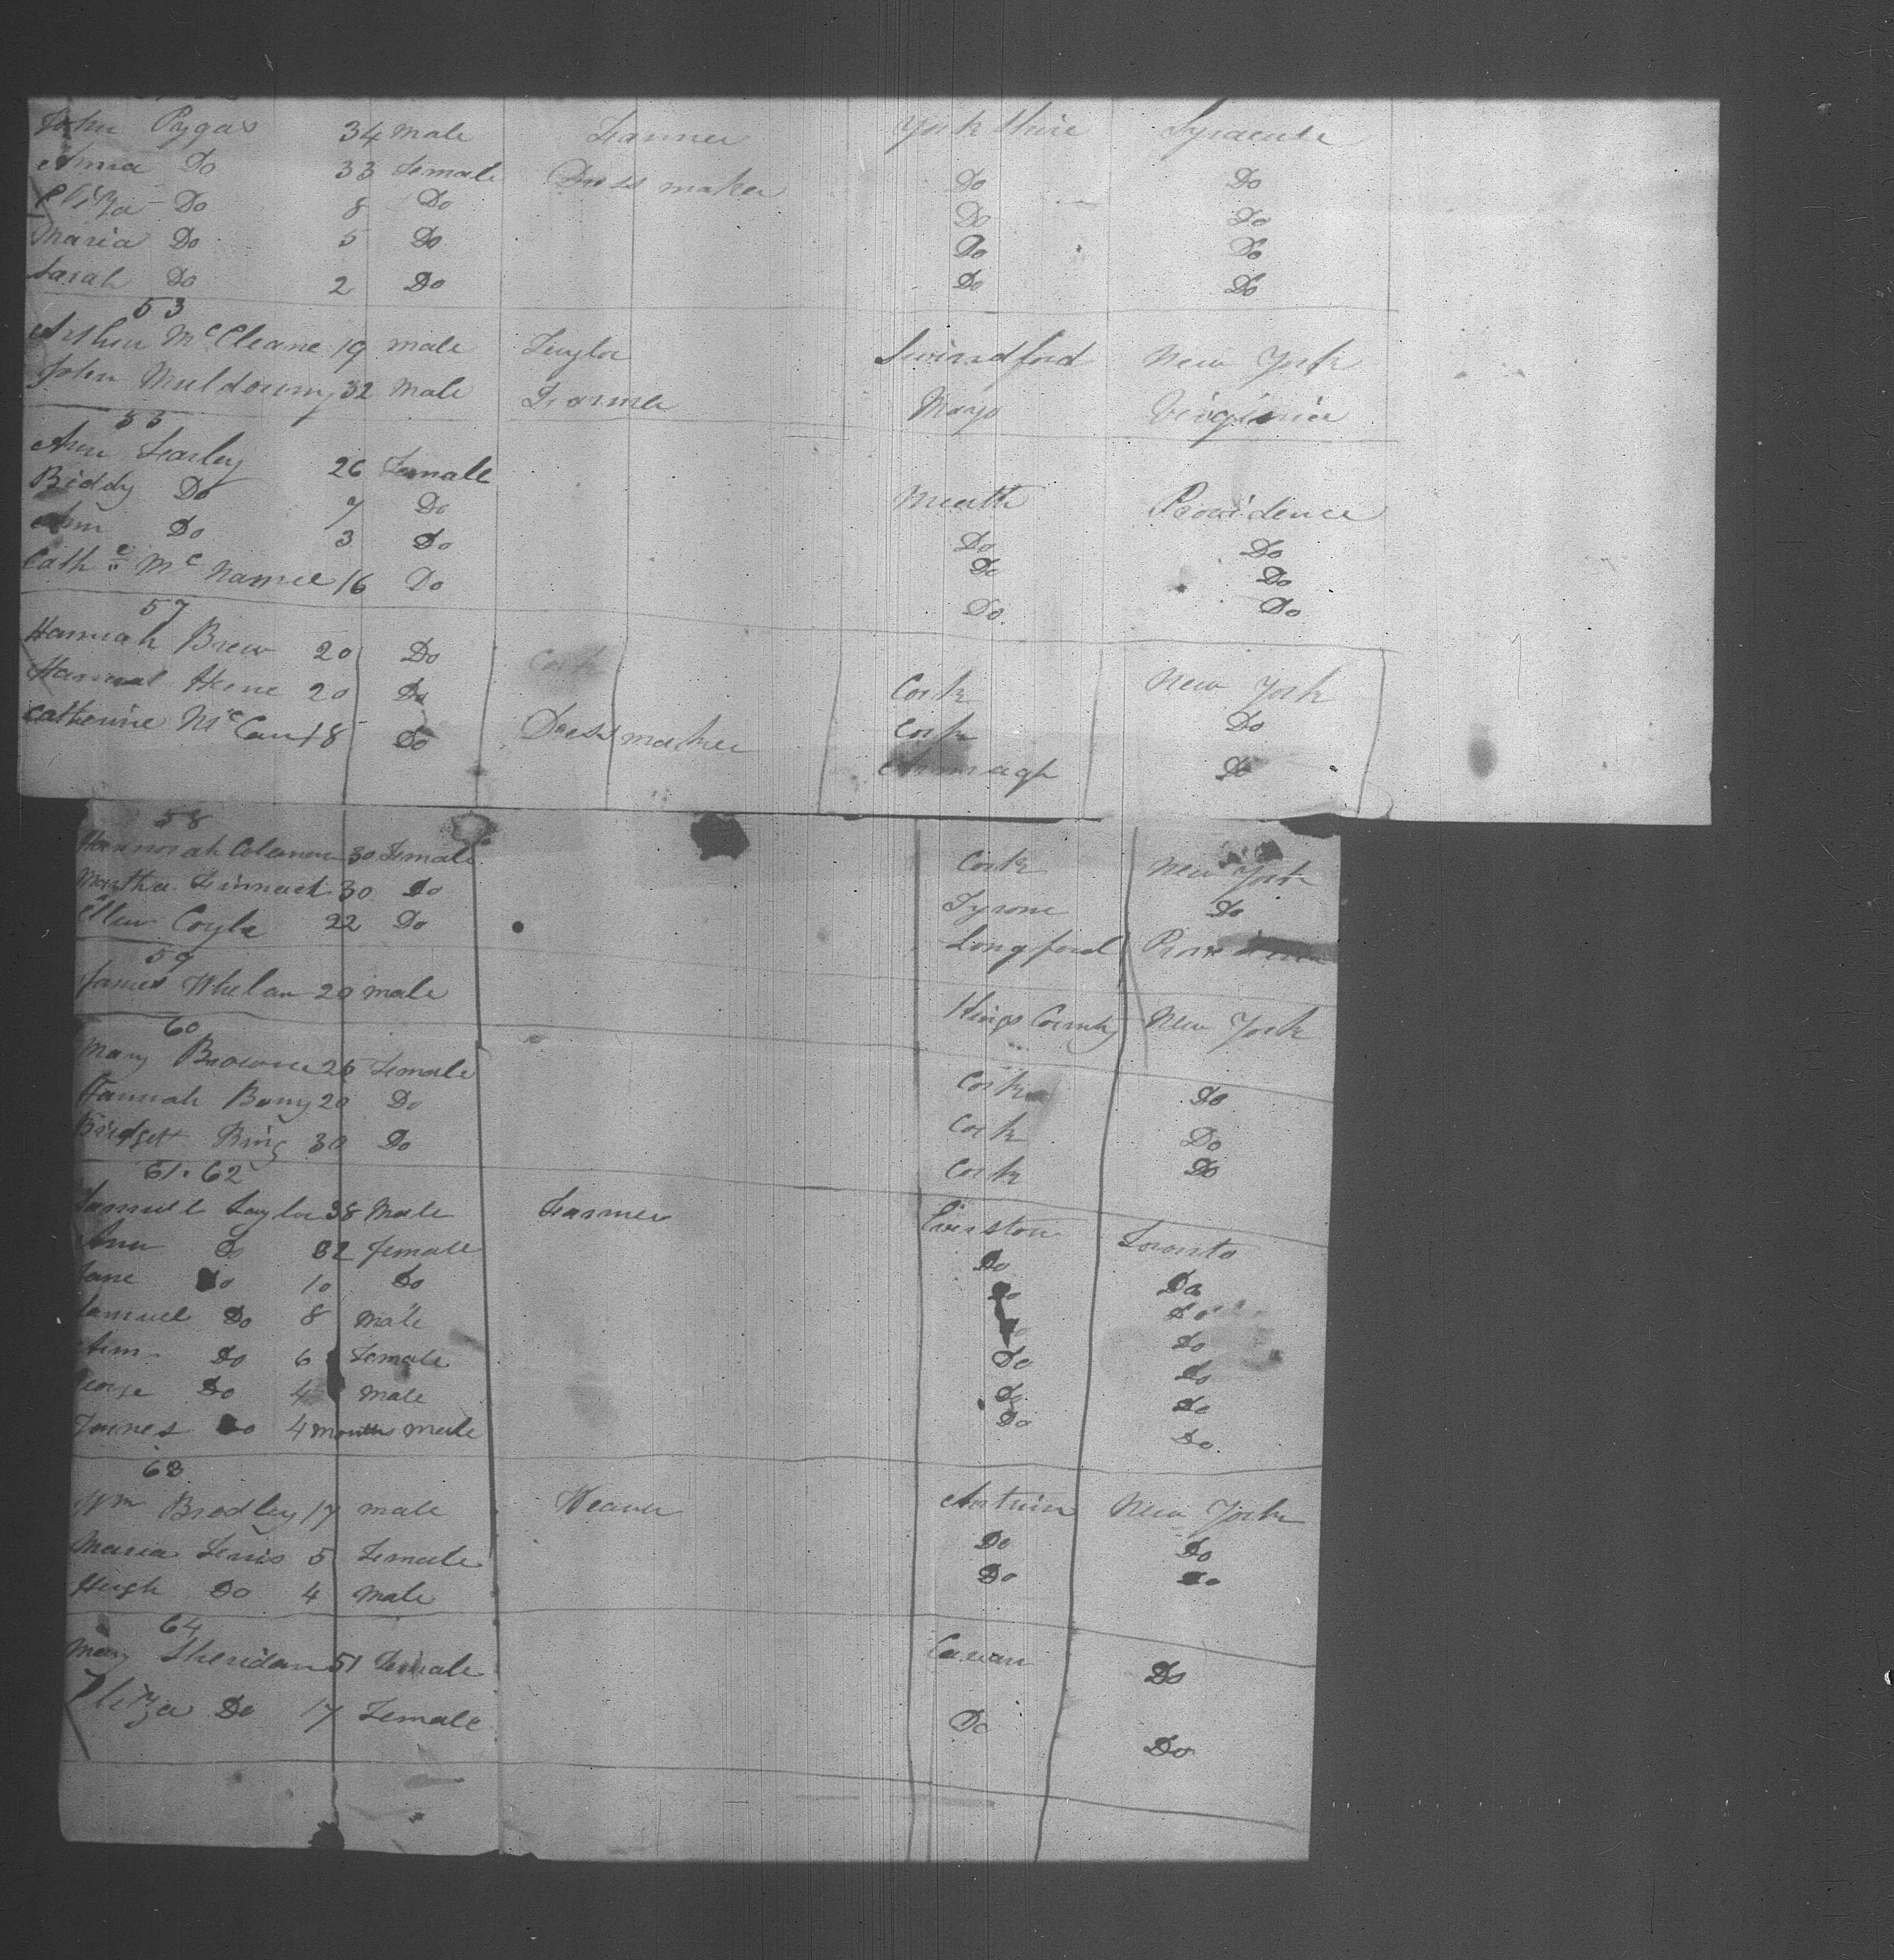 John Pygas 34 Male Tanner York Shire Syracuse
Anna Do 33 Female Dress maker Do Do
Eliza Do 8 Do Do Do
Maria Do 5 Do Do Do
Sarah Do 2 Do Do Do
53
Arthur McCleane 19 male Taylor Swinedford New York
John Muldowny 32 Male Farmer Mayo Virginia
55
Ann Farley 26 Female Meath Providence
Biddy Do 7 Do Do Do
Ann Do 3 Do Do Do
Cathe McNamee 16 Do Do Do
57
Hannah Brew 20 Do Cork New York
20 Do Cork Do
Catherine McCan 18 Do Dress maker Armagh Do
58
Hannorah 30 Female Cork New York
Martha 30 Do Tyrone Do
Ellen Coyle 22 Do Longford Providence
59
James Whelan 20 male Kings County New York
60
Mary Browne 26 Female Cork Do
Hannah 20 Do Cork Do
Bridgett Bing 30 Do Cork Do
61.62
Samuel Taylor 38 Male Farmer Toronto
Ann Do 32 female Do Do
Jane Do 10 Do Do Do
Samuel Do 8 Male Do Do
Ann Do 6 Female Do Do
George Do 4 Male Do Do
James Do 4 months male Do Do
63
Wm Bradley 17 male Weaver Antrim New York
Maria 5 Female Do Do
Hugh Do 4 Male Do Do
64
Mary Sheridan 51 Female Cavan Do
Eliza Do 17 Female Do Do